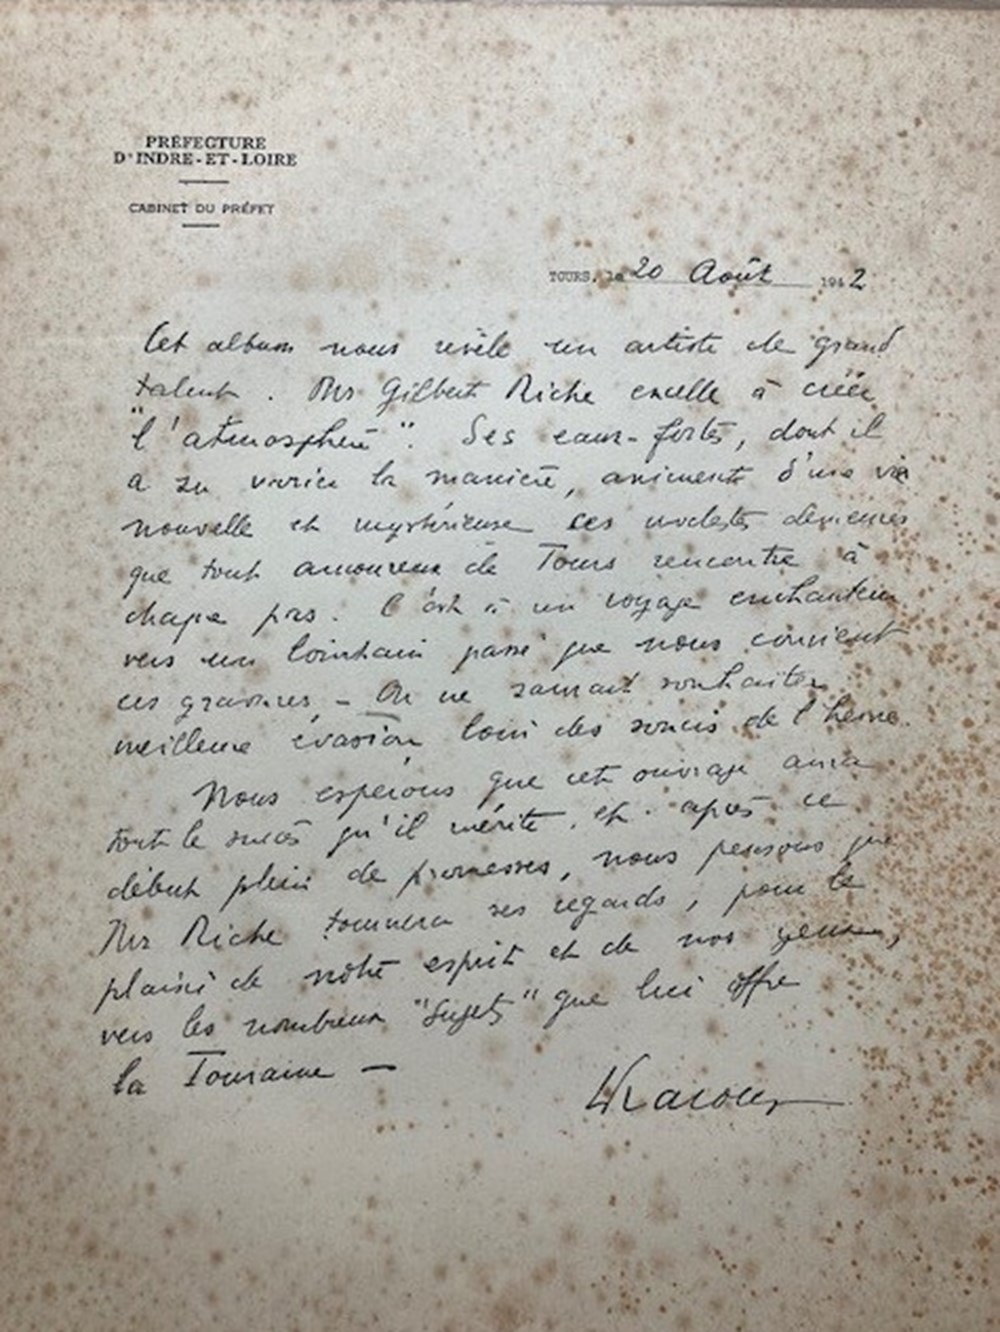 PRÉFECTURE
D'INDRE-ET-LOIRE
CABINET DU PRÉFET
TOURS, le 20 Août 1942
Cet album nous révèle un artiste de grand
talent. Mr Gilbert Riche excelle à créer
"l'atmosphère". Ses eaux-fortes, dont il
a su varier la manière, animent d'une vie
nouvelle et mystérieuse ces modestes demeures
que tout amoureux de Tours rencontre à
chaque pas. C'est à un voyage enchanteur
vers un lointain passé que nous convient
ces gravures - On ne saurait souhaiter
meilleure évasion loin des soucis de l'heure.
Nous espérons que cet ouvrage aura
tout le succès qu'il mérite, et après ce
début plein de promesses, nous pensons que
Mr Riche tournera ses regards, pour le
plaisir de notre esprit et de nos yeux,
vers les nombreux "Sujets" que lui offre
la Touraine -